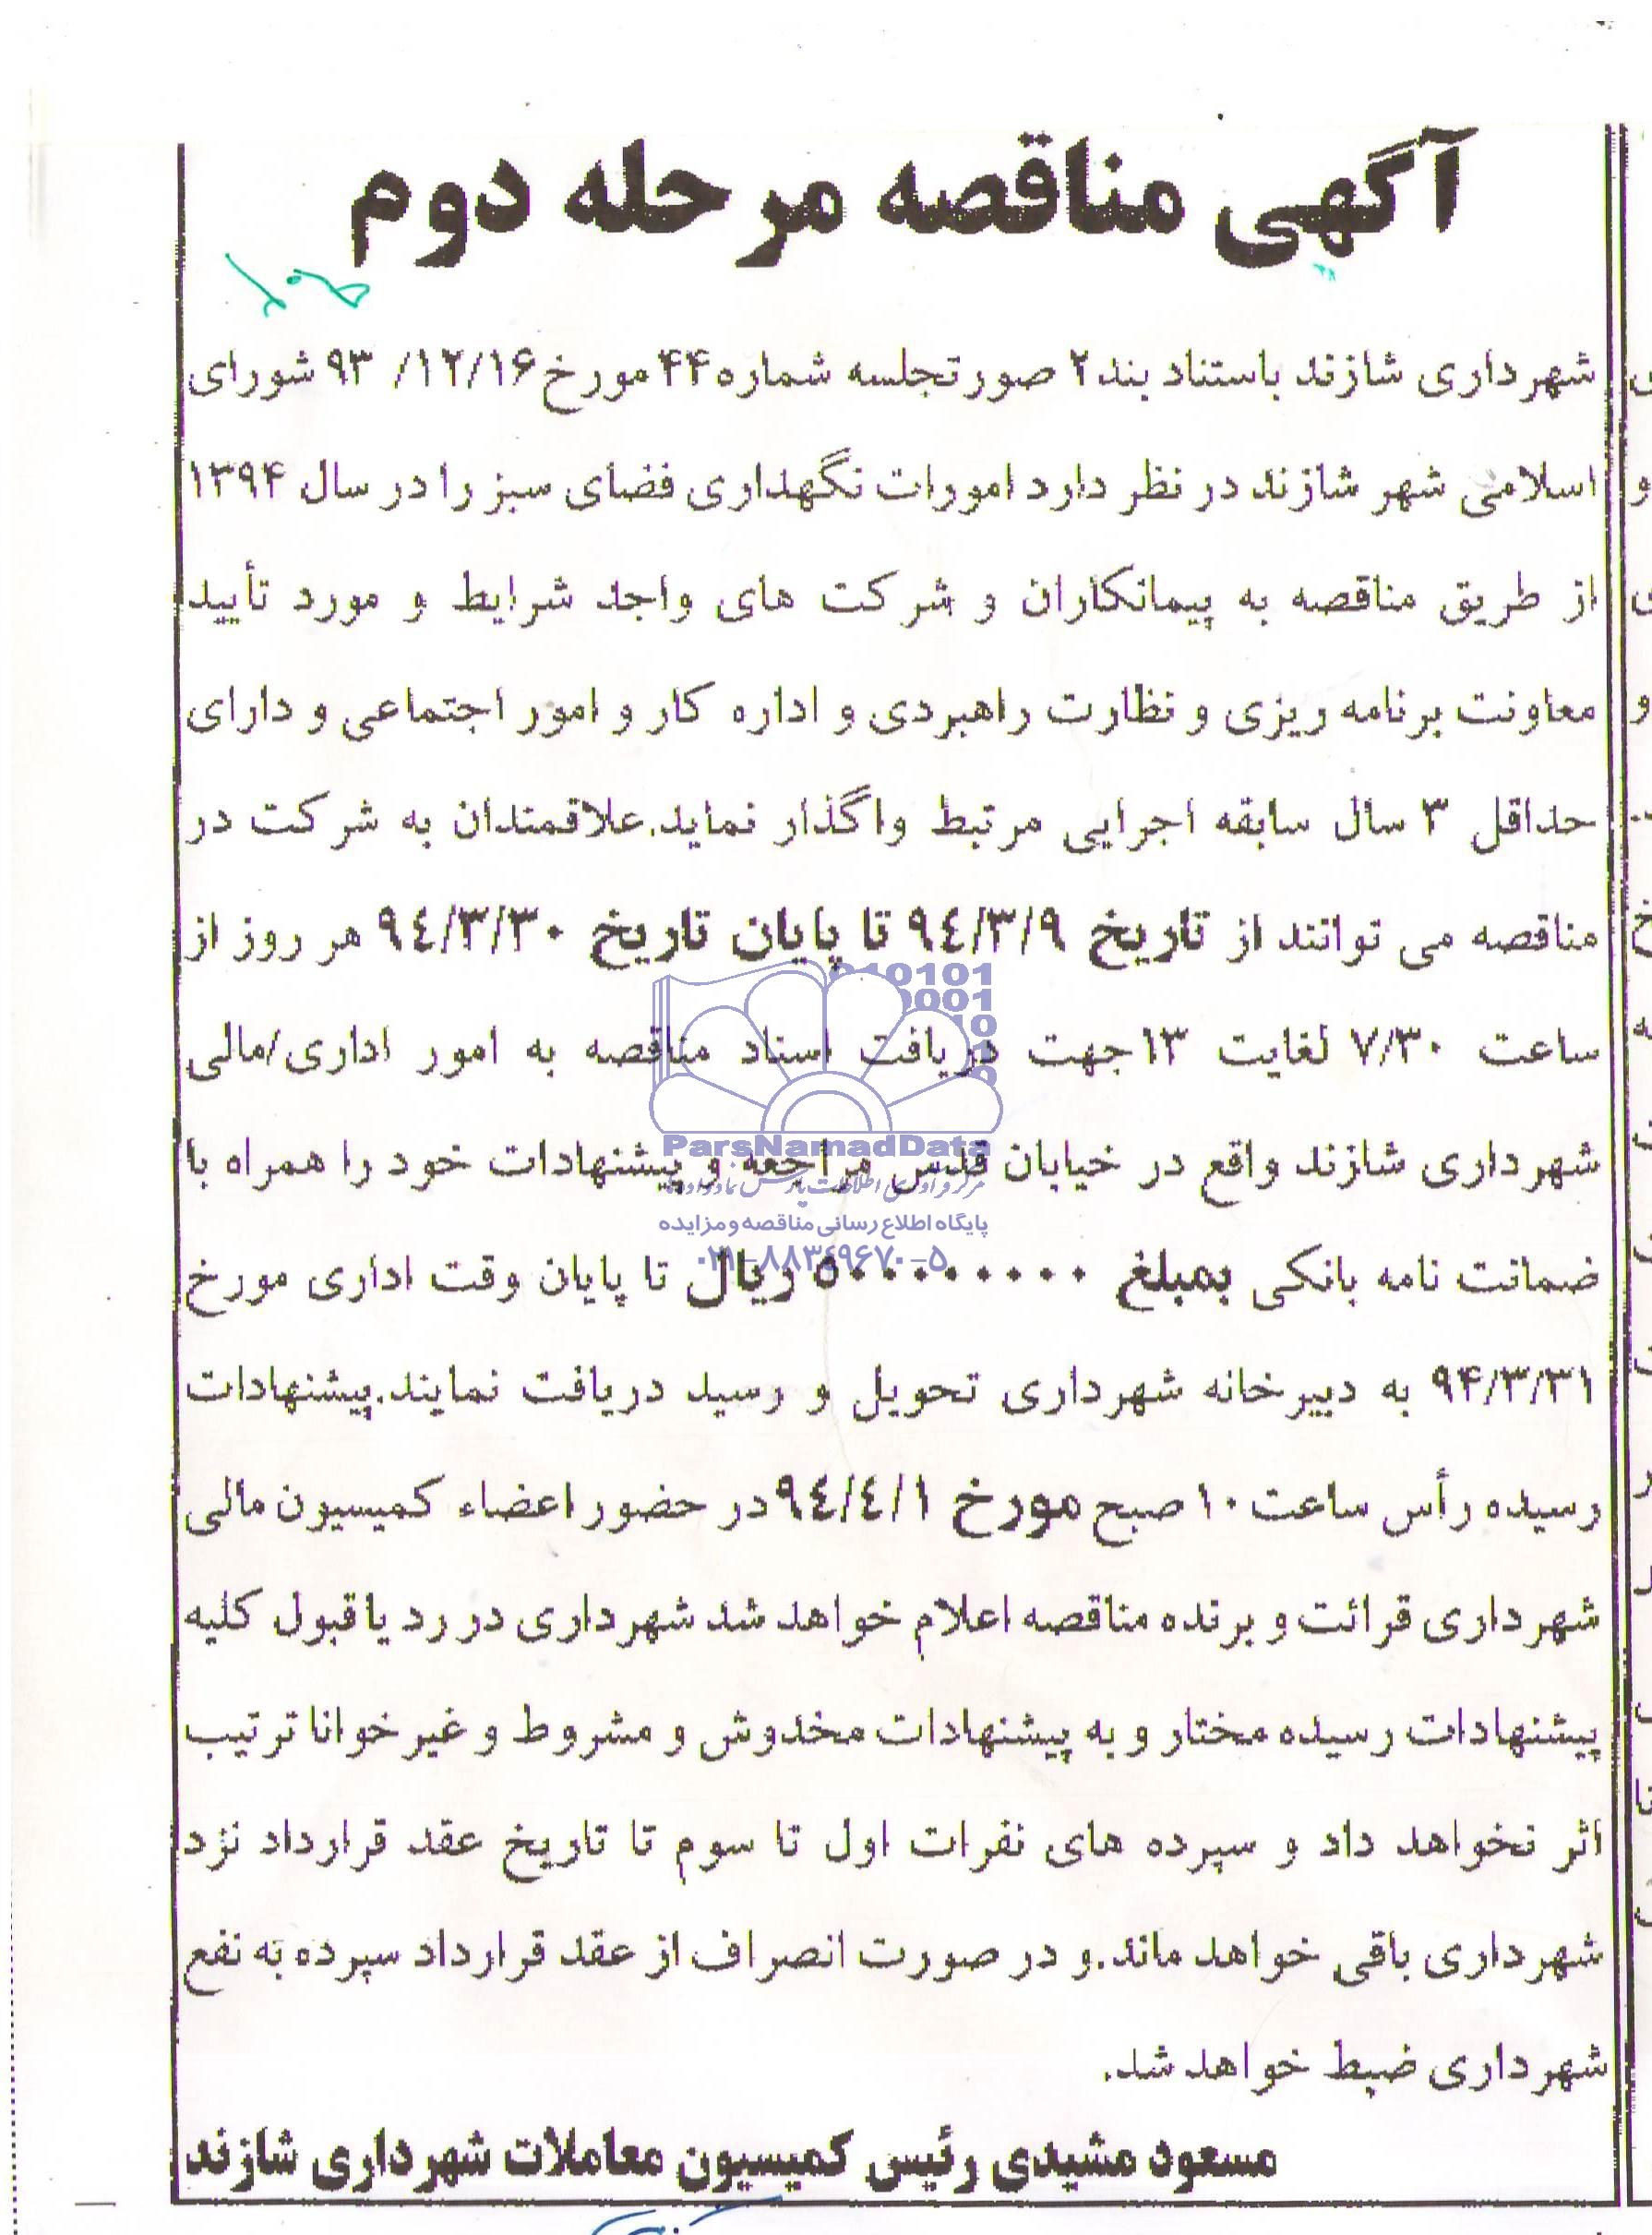 آگهی مناقصه مرحله دوم
شهرداری شازند باستناد بند۲ صورتجلسه شماره۴۴مورخ۱۲/۱۶/ ۹۳شورای
اسلامی شهر شازند در نظر دارد امورات نگهداری فضای سبز را در سال ۱۳۹۴
از طریق مناقصه به پیمانکاران و شرکت های واجد شرایط و مورد تأیید
معاونت برنامه ریزی و نظارت راهبردی و اداره کار و امور اجتماعی و دارای
حداقل ۳ سال سابقه اجرایی مرتبط واگذار نماید.علاقمندان به شرکت در
مناقصه می توانند از تاریخ ۹٤/۳/۹ تا پایان تاریخ ۹٤/۳/۳۰ هر روز از
ساعت ۷/۳۰ لغایت ۱۳جهت دریافت اسناد مناقصه به امور اداری/مالی
شهرداری شازند واقع در خیابان قدس مراجعه و پیشنهادات خود را همراه با
ضمانت نامه بانکی بمبلغ ۵۰۰۰۰۰۰۰۰ ریال تا پایان وقت اداری مورخ
۹۴/۳/۳۱ به دبیرخانه شهرداری تحویل و رسید دریافت نمایند.پیشنهادات
رسیده رأس ساعت ۱۰صبح مورخ ۹٤/٤/۱در حضور اعضاء کمیسیون مالی
شهرداری قرائت و برنده مناقصه اعلام خواهد شد شهرداری در رد یا قبول کلیه
پیشنهادات رسیده مختار و به پیشنهادات مخدوش و مشروط و غیر خوانا ترتیب
اثر نخواهد داد و سپرده های نفرات اول تا سوم تا تاریخ عقد قرارداد نزد
شهرداری باقی خواهد ماند.و در صورت انصراف از عقد قرارداد سپرده به نفع
شهرداری ضبط خواهد شد.
مسعود مشیدی رئیس کمیسیون معاملات شهرداری شازند
ParsNamadData
مرکز فرآوری اطلاعات پارس نماد داده ها
پایگاه اطلاع رسانی مناقصه و مزایده
۰۲۱-۸۸۳٤۹۶۷۰-۵